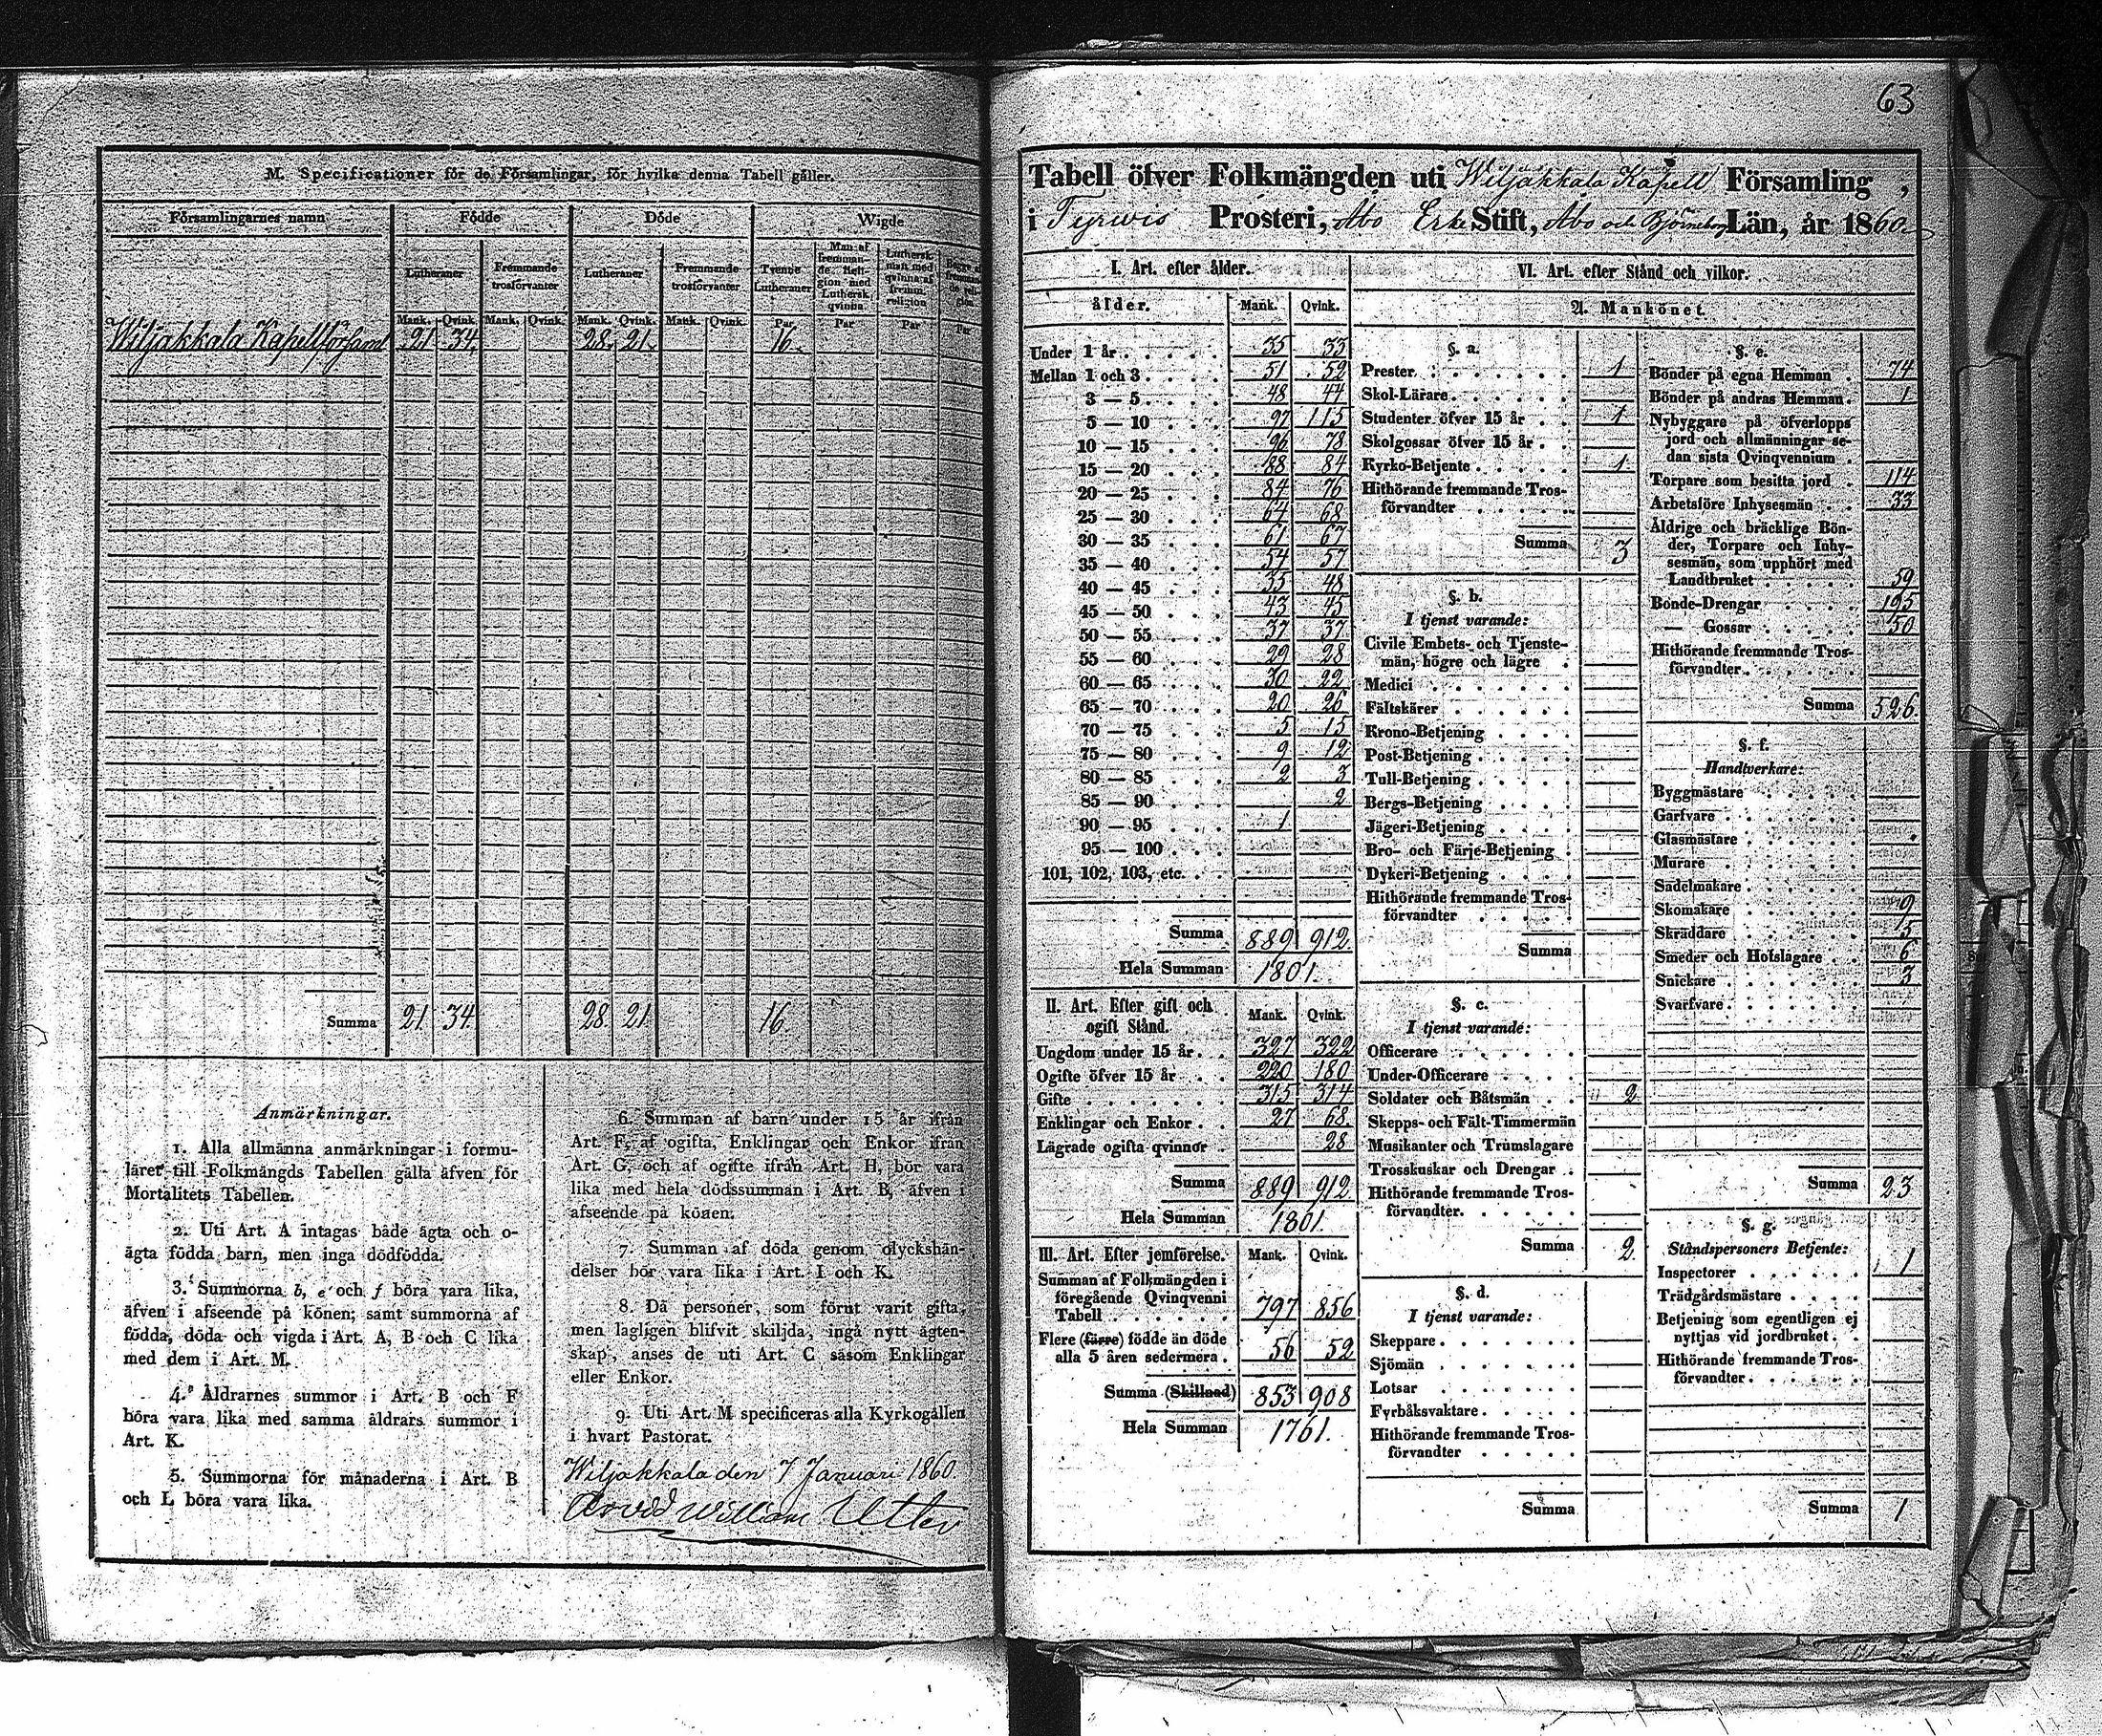 M. Specificationer för de Församlingar, för hvilka denna Tabell gäller.
Församlingarnes namn Födde Döde Wigde
Lutheraner Fremmande trosförvanter Lutheraner Fremmande trosförvanter Tvenne Lutheraner Man af fremmande Religion med Luthersk qvinna Luthersk man med qvinna af fremm. religion
Mank. Qvink. Mank. Qvink. Mank. Qvink. Mank. Qvink. Par Par Par Par
Wiljakkala Kapellförsaml 21 34 28 21 16
Summa 21 34 28 21 16
Anmärkningar.
1. Alla allmänna anmärkningar i formu-
läret till Folkmängds Tabellen gälla äfven för
Mortalitets Tabellen.
2. Uti Art. A intagas både ägta och o-
ägta födda barn, men inga dödfödda.
3. Summorna b, e och f böra vara lika,
äfven i afseende på könen; samt summorna af
födda, döda och vigda i Art. A, B och C lika
med dem i Art. M.
4. Åldrarnes summor i Art. B och F
böra vara lika med samma åldrars summor i
Art. K.
5. Summorna för månaderna i Art. B
och L böra vara lika.
6. Summan af barn under 15 år ifrån
Art. F, af ogifta, Enklingar och Enkor ifrån
Art. G, och af ogifte ifrån Art. H, bör vara
lika med hela dödssumman i Art. B, äfven i
afseende på könen.
7. Summan af döda genom olyckshän-
delser bör vara lika i Art. I och K.
8. Då personer, som förut varit gifta,
men lagligen blifvit skiljda, ingå nytt ägten-
skap, anses de uti Art. C såsom Enklingar
eller Enkor.
9. Uti Art. M specificeras alla Kyrkogällen
i hvart Pastorat.
Wiljakkala den 7 Januari 1860
Arvid William Utter
63
Tabell öfver Folkmängden uti Wiljakkala Kapell Församling,
i Tyrwis Prosteri, Åbo Erke Stift, Åbo och Björneborgs Län, år 1860
I. Art. efter ålder.
ålder. Mank. Qvink.
Under 1 år 35 33
Mellan 1 och 3 51 59
3 — 5 48 44
5 — 10 97 115
10 — 15 96 78
15 — 20 88 84
20 — 25 84 76
25 — 30 64 68
30 — 35 61 67
35 — 40 54 57
40 — 45 35 48
45 — 50 43 45
50 — 55 37 37
55 — 60 29 28
60 — 65 30 22
65 — 70 20 26
70 — 75 5 15
75 — 80 9 12
80 — 85 2 3
85 — 90 2
90 — 95 1
95 — 100
101, 102, 103, etc.
Summa 889 912
Hela Summan 1801.
II. Art. Efter gift och ogift Stånd. Mank. Qvink.
Ungdom under 15 år 327 322
Ogifte öfver 15 år 220 180
Gifte 315 314
Enklingar och Enkor 27 68
Lägrade ogifta qvinnor 28
Summa 889 912
Hela Summan 1801.
III. Art. Efter jemförelse. Mank. Qvink.
Summan af Folkmängden i
föregående Qvinqvenni
Tabell 797 856
Flere (färre) födde än döde
alla 5 åren sedermera 56 52
Summa (Skillnad) 853 908
Hela Summan 1761.
VI. Art. efter Stånd och vilkor.
A. Mankönet.
§. a.
Prester 1
Skol-Lärare
Studenter öfver 15 år 1
Skolgossar öfver 15 år
Kyrko-Betjente 1
Hithörande fremmande Tros-
förvandter
Summa 3
§. b.
I tjenst varande:
Civile Embets- och Tjenste-
män, högre och lägre
Medici
Fältskärer
Krono-Betjening
Post-Betjening
Tull-Betjening
Bergs-Betjening
Jägeri-Betjening
Bro- och Färje-Betjening
Dykeri-Betjening
Hithörande fremmande Tros-
förvandter
Summa
§. c.
I tjenst varande:
Officerare
Under-Officerare
Soldater och Båtsmän 2
Skepps- och Fält-Timmermän
Musikanter och Trumslagare
Trosskuskar och Drengar
Hithörande fremmande Tros-
förvandter.
Summa 2
§. d.
I tjenst varande:
Skeppare
Sjömän
Lotsar
Fyrbåksvaktare
Hithörande fremmande Tros-
förvandter
Summa
§. e.
Bönder på egna Hemman 74
Bönder på andras Hemman 1
Nybyggare på öfverlopps
jord och allmänningar se-
dan sista Qvinqvennium
Torpare som besitta jord 114
Arbetsföre Inhysesmän 33
Åldrige och bräcklige Bön-
der, Torpare och Inhy-
sesmän, som upphört med
Landtbruket 59
Bonde-Drengar 195
— Gossar 50
Hithörande fremmande Tros-
förvandter
Summa 526.
§. f.
Handtverkare:
Byggmästare
Garfvare
Glasmästare
Murare
Sadelmakare
Skomakare 9
Skräddare 5
Smeder och Hofslagare 6
Snickare 3
Svarfvare
Summa 23
§. g.
Ståndspersoners Betjente:
Inspectorer 1
Trädgårdsmästare
Betjening som egentligen ej
nyttjas vid jordbruket
Hithörande fremmande Tros-
förvandter
Summa 1